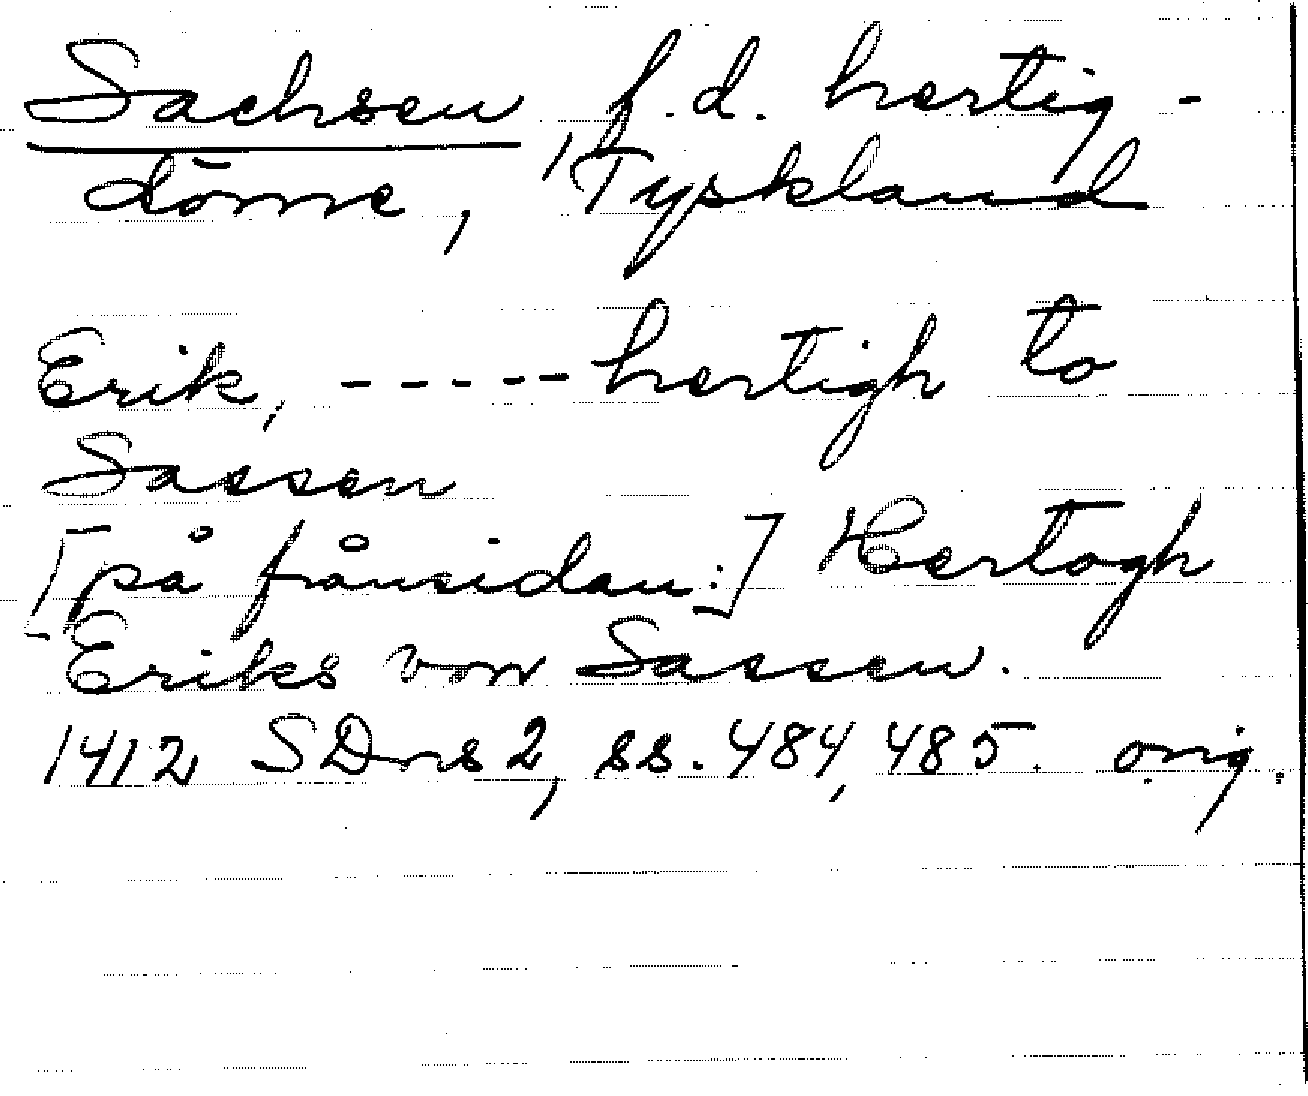 Sachsen, f.d. hertig-
döme, Tyskland
Erik, ----- hertigh to
Sassen
[på frånsidan:] Hertogh
Eriks von Sassen.
1412 SDns 2, ss. 484, 485. orig.